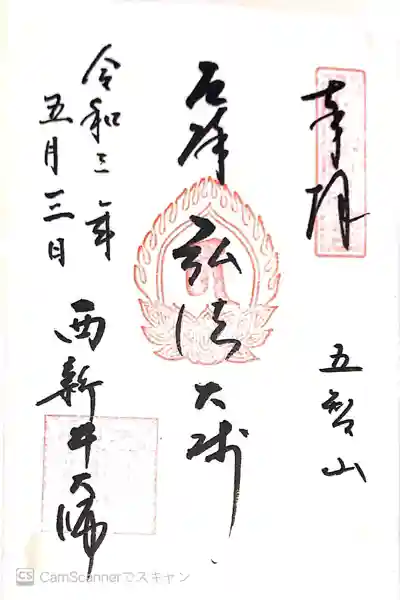 奉拝
五智山
厄除
弘法大師
令和三年
五月三日
西新井大師
CS CamScannerでスキャン